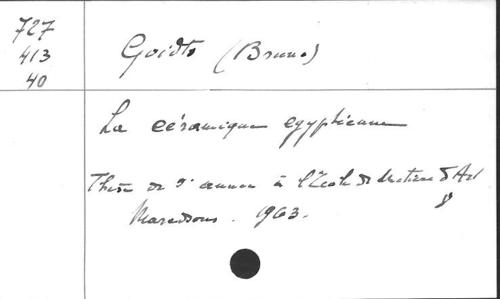 727
413
40
Goidts (Bruno)
La céramique égyptienne
Thèse de 5e année à l'Ecole de Métiers d'Art
Maredsous. 1963.